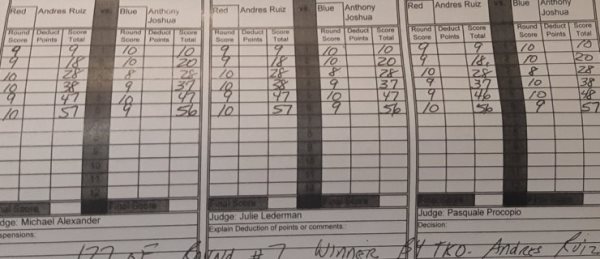 Red Andres Ruiz vs. Blue Anthony Joshua
Round Score Deduct Points Score Total Round Score Deduct Points Score Total
9 9 10 10
9 18 10 20
10 28 8 28
10 38 9 37
9 47 10 47
10 57 9 56
Final Score Final Score
Judge: Michael Alexander
Red Andres Ruiz vs. Blue Anthony Joshua
Round Score Deduct Points Score Total Round Score Deduct Points Score Total
9 9 10 10
9 18 10 20
10 28 8 28
10 38 9 37
9 47 10 47
10 57 9 56
Final Score Final Score
Judge: Julie Lederman
Explain Deduction of points or comments:
Red Andres Ruiz vs. Blue Anthony Joshua
Round Score Deduct Points Score Total Round Score Deduct Points Score Total
9 9 10 10
9 18 10 20
10 28 8 28
9 37 10 38
9 46 10 48
10 56 9 57
Final Score Final Score
Judge: Pasquale Procopio
Decision:
OF ROUND #7 WINNER BY TKO- ANDRES RUIZ